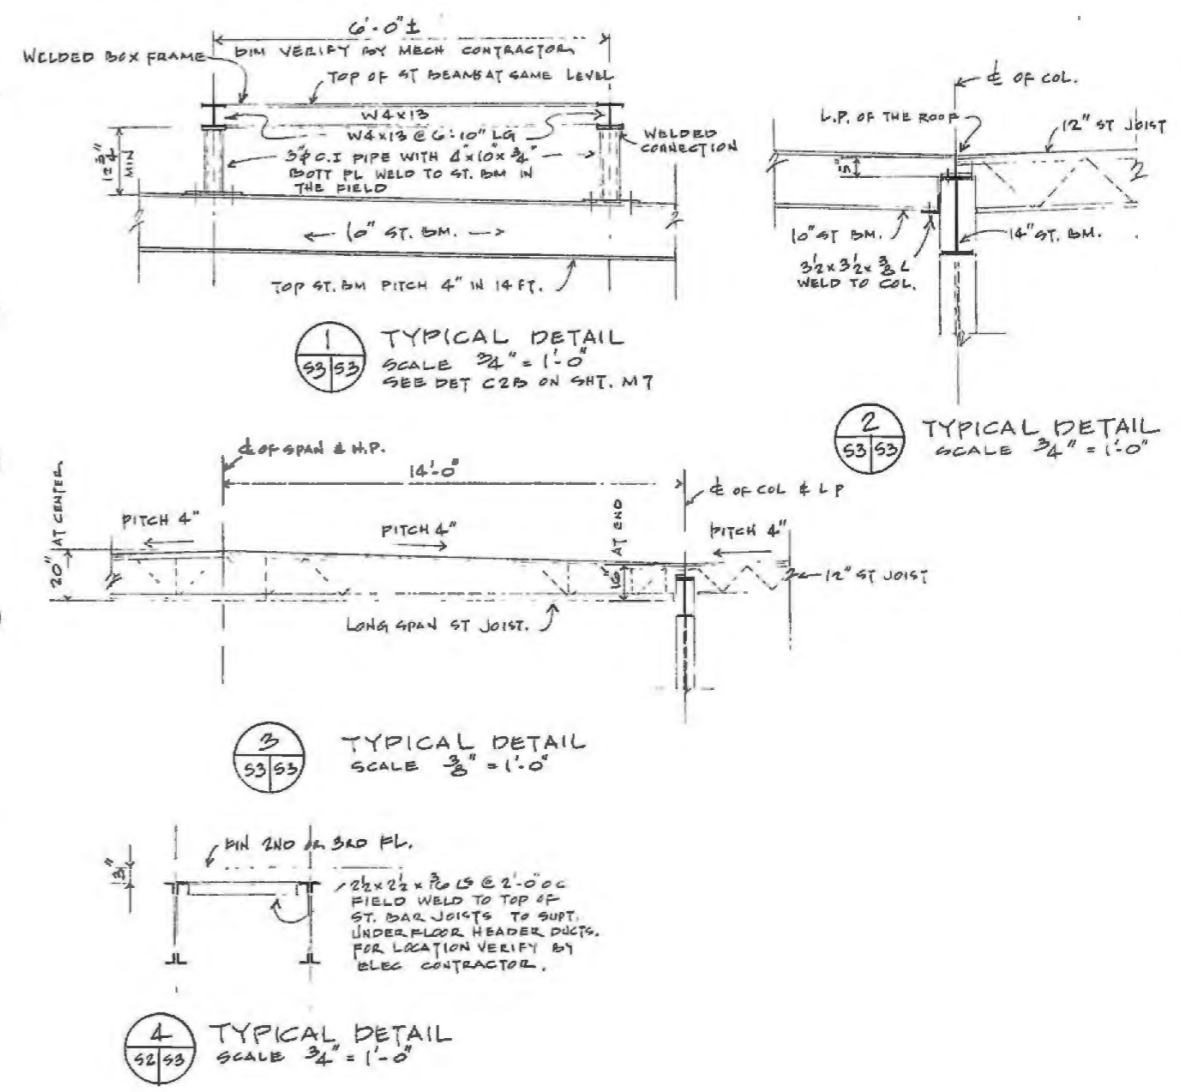 6'-0"±
DIM VERIFY BY MECH CONTRACTOR
WELDED BOX FRAME
TOP OF ST BEAMS AT SAME LEVEL
W4x13
W4x13 @ 6'-10" LG
WELDED
CONNECTION
MIN
3"φ C.I PIPE WITH 4"x10"x3/4"
BOTT PL WELD TO ST. BM IN
THE FIELD
10" ST. BM.
TOP ST. BM PITCH 4" IN 14 FT.
1
S3 S3
TYPICAL DETAIL
SCALE 3/4" = 1'-0"
SEE DET C2B ON SHT. M7
℄ OF COL.
L.P. OF THE ROOF
12" ST JOIST
10" ST BM.
14" ST. BM.
3 1/2 x 3 1/2 x 3/8 L
WELD TO COL.
2
S3 S3
TYPICAL DETAIL
SCALE 3/4" = 1'-0"
℄ OF SPAN & H.P.
14'-0"
℄ OF COL & L P
20" AT CENTER
PITCH 4"
PITCH 4"
16" AT END
PITCH 4"
12" ST JOIST
LONG SPAN ST JOIST.
3
S3 S3
TYPICAL DETAIL
SCALE 3/8" = 1'-0"
FIN 2ND OR 3RD FL.
3"
2 1/2 x 2 1/2 x 3/16 LS @ 2'-0" OC
FIELD WELD TO TOP OF
ST. BAR JOISTS TO SUPT.
UNDERFLOOR HEADER DUCTS.
FOR LOCATION VERIFY BY
ELEC CONTRACTOR.
4
S2 S3
TYPICAL DETAIL
SCALE 3/4" = 1'-0"